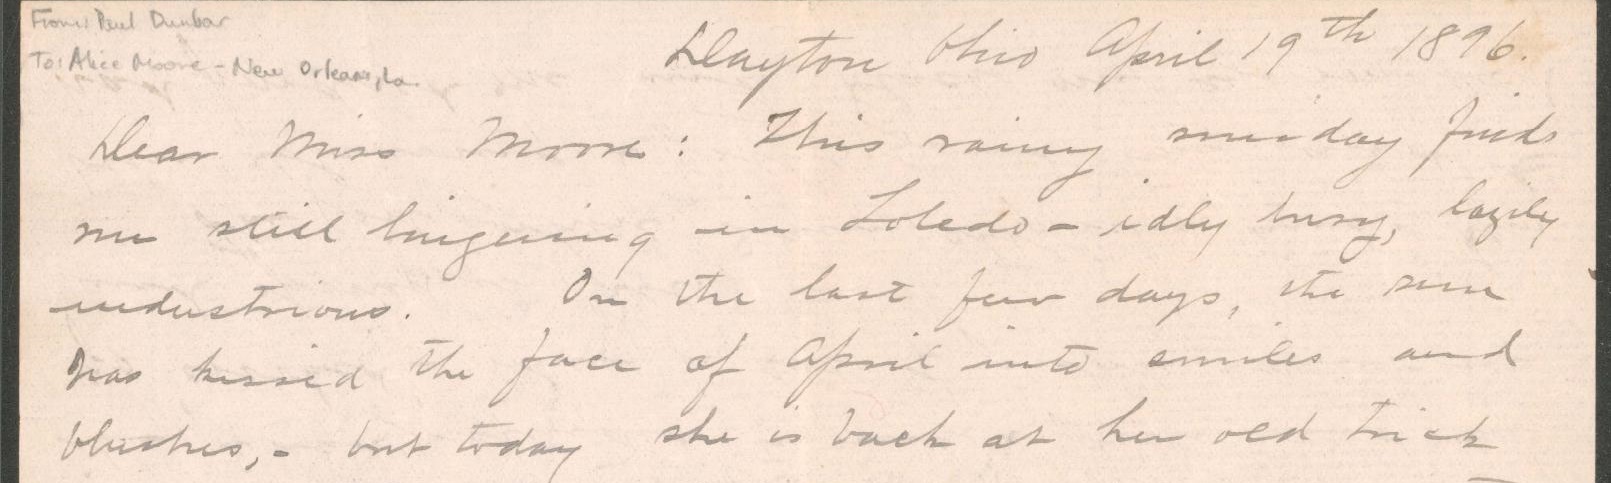 From: Paul Dunbar
To: Alice Moore - New Orleans, La.
Dayton Ohio April 19th 1896.
Dear Miss Moore: This rainy sunday finds
me still lingering in Toledo - idly busy, lazily
industrious. On the last few days, the sun
has kissed the face of April into smiles and
blushes, - but today she is back at her old trick